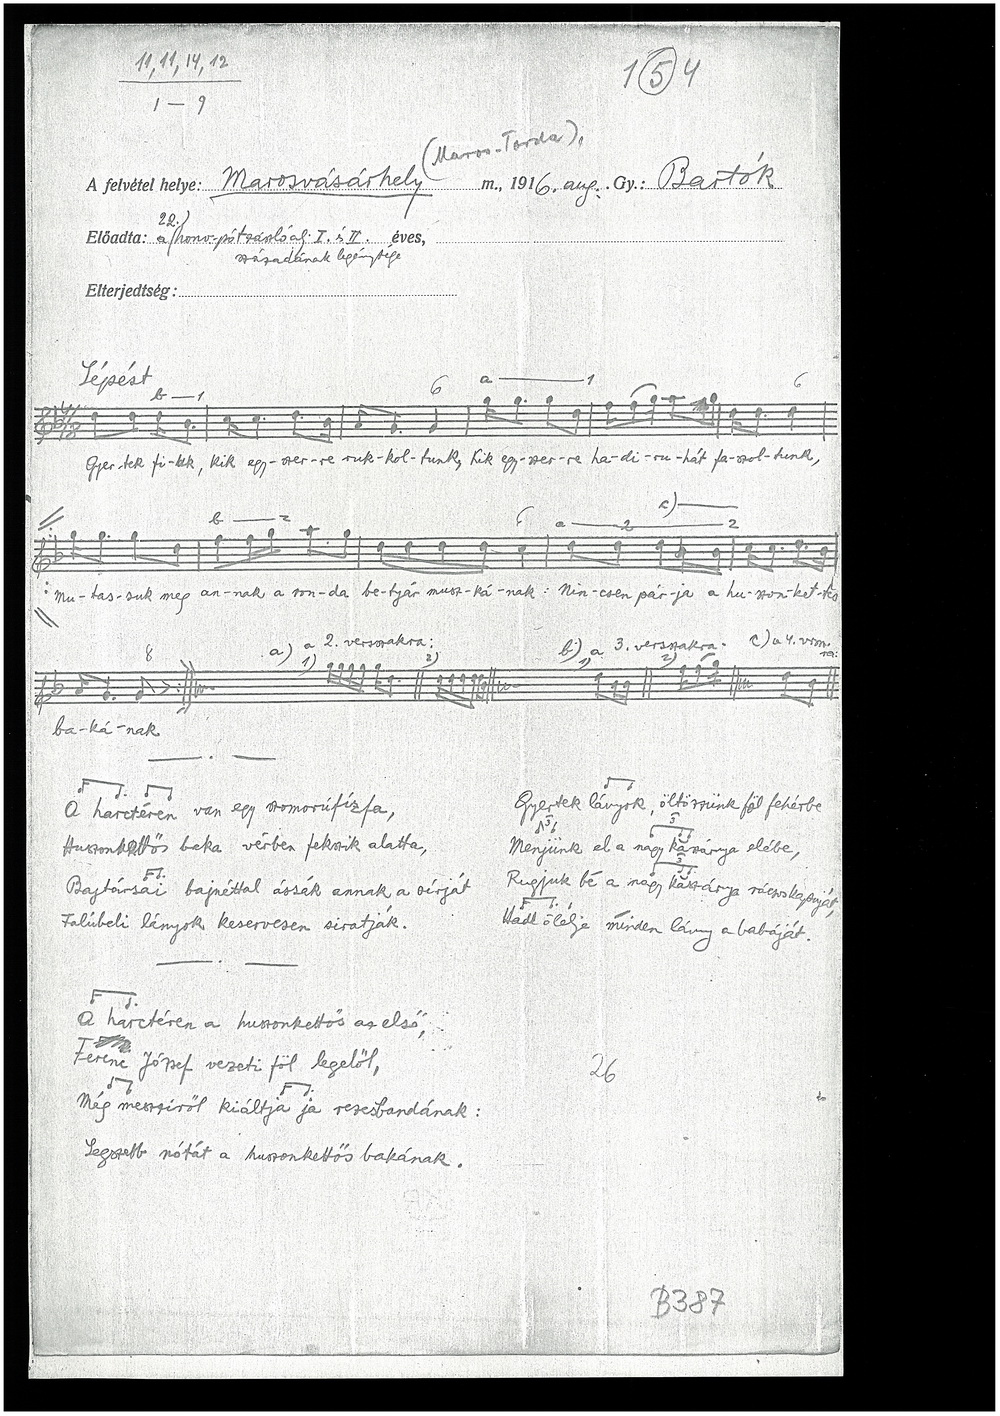 11, 11, 14, 12
1 — 9
1 5 4
(Maros-Torda),
A felvétel helye: Marosvásárhely m., 1916. aug. Gy.: Bartók
22.)
Előadta: a honv-pótzászlóalj I. és II. éves,
századának legénysége
Elterjedtség:
Lépést
b — 1 6 a — 1 6
Gyer-tek fi-uk, kik egy-szer-re ruk-kol-tunk, Kik egy-szer-re ha-di-ru-hát fa-szol-tunk,
b — 2 6 a — 2 c) — 2
: Mu-tas-suk meg an-nak a ron-da be-tyár musz-ká-nak : Nin-csen pár-ja a hu-szon-ket-tes
8 a) a 2. versszakra: 1) 2) b) a 3. versszakra: 1) 2) c) a 4. vrsza-ra:
ba-ká-nak
A harctéren van egy szomorúfűzfa,
Huszonkettős baka vérben fekszik alatta,
Bajtársai bajnéttal ássák annak a sírját
Falúbeli lányok keservesen siratják.
Gyertek lányok, öltözzünk föl fehérbe
Menjünk el a nagy kaszárnya elébe,
Rugjuk bé a nagy kaszárnya rácsoskapuját,
Hadd ölelje minden lány a babáját.
A harctéren a huszonkettős az első,
Ferenc József vezeti föl legelől,
Még messziről kiáltja ja rezesbandának :
Legszebb nótát a huszonkettős bakának.
26
B387